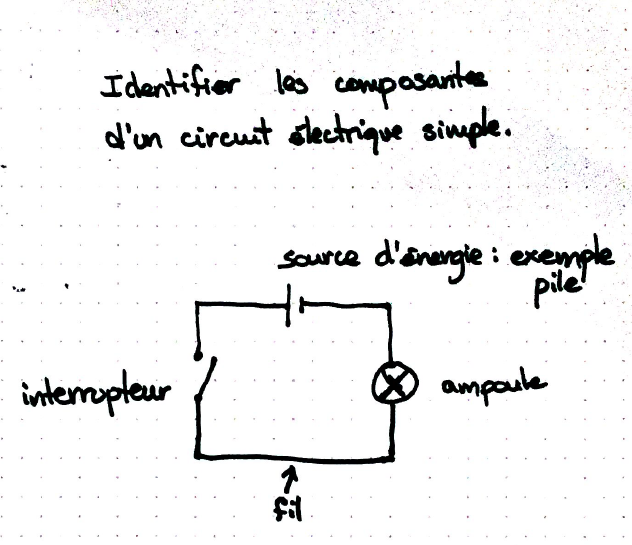 Identifier les composantes
d'un circuit électrique simple.
source d'énergie : exemple
pile
interrupteur
ampoule
fil